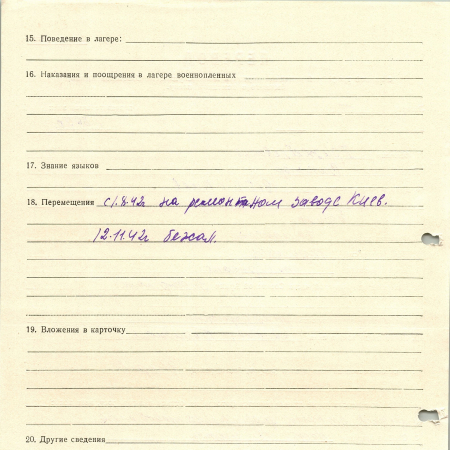 15. Поведение в лагере:
16. Наказания и поощрения в лагере военнопленных
17. Знание языков
18. Перемещения с 1.8.42г на ремонтном заводе Киев.
12.11.42г бежал.
19. Вложения в карточку
20. Другие сведения